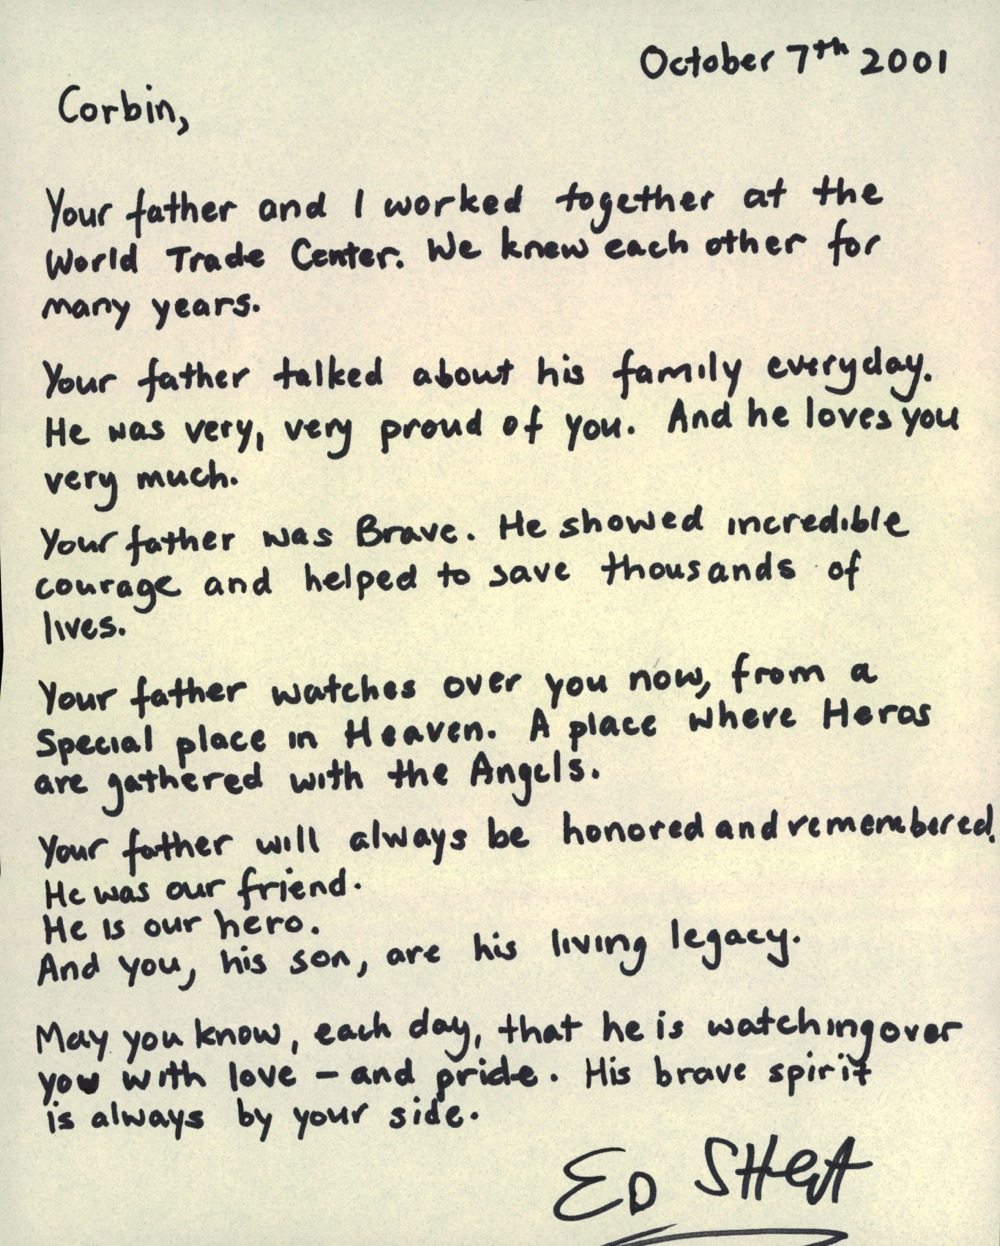 October 7th 2001
Corbin,
Your father and I worked together at the
World Trade Center. We knew each other for
many years.
Your father talked about his family everyday.
He was very, very proud of you. And he loves you
very much.
Your father was Brave. He showed incredible
courage and helped to save thousands of
lives.
Your father watches over you now, from a
Special place in Heaven. A place where Heros
are gathered with the Angels.
Your father will always be honored and remembered.
He was our friend.
He is our hero.
And you, his son, are his living legacy.
May you know, each day, that he is watching over
you with love – and pride. His brave spirit
is always by your side.
ED SHEA